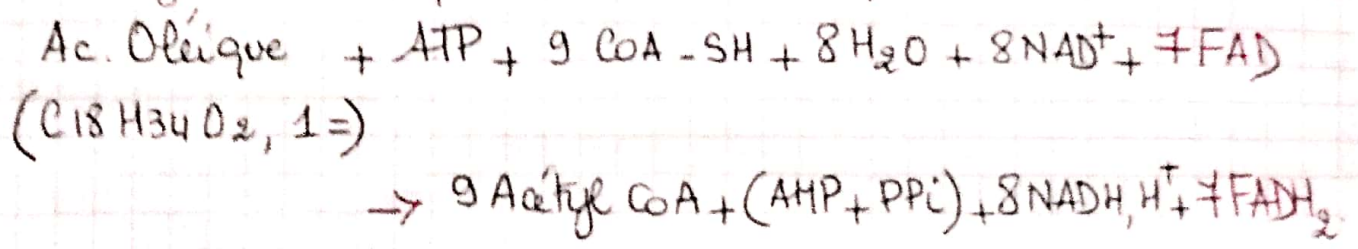 Ac. Oléique + ATP + 9 CoA-SH + 8 H₂O + 8 NAD⁺ + 7 FAD
(C18 H34 O₂, 1=)
→ 9 Acétyl CoA + (AMP + PPi) + 8 NADH, H⁺ + 7 FADH₂.